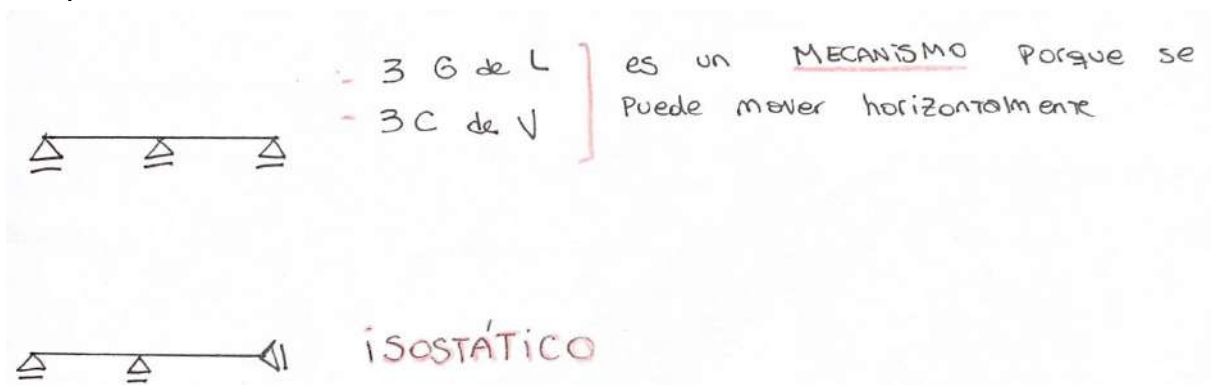 - 3 G de L es un MECANISMO Porque se
- 3 C de V Puede mover horizontalmente
iSOSTÁTiCO